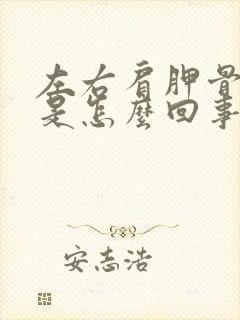 左右肩胛骨
是怎麼回事
安志浩